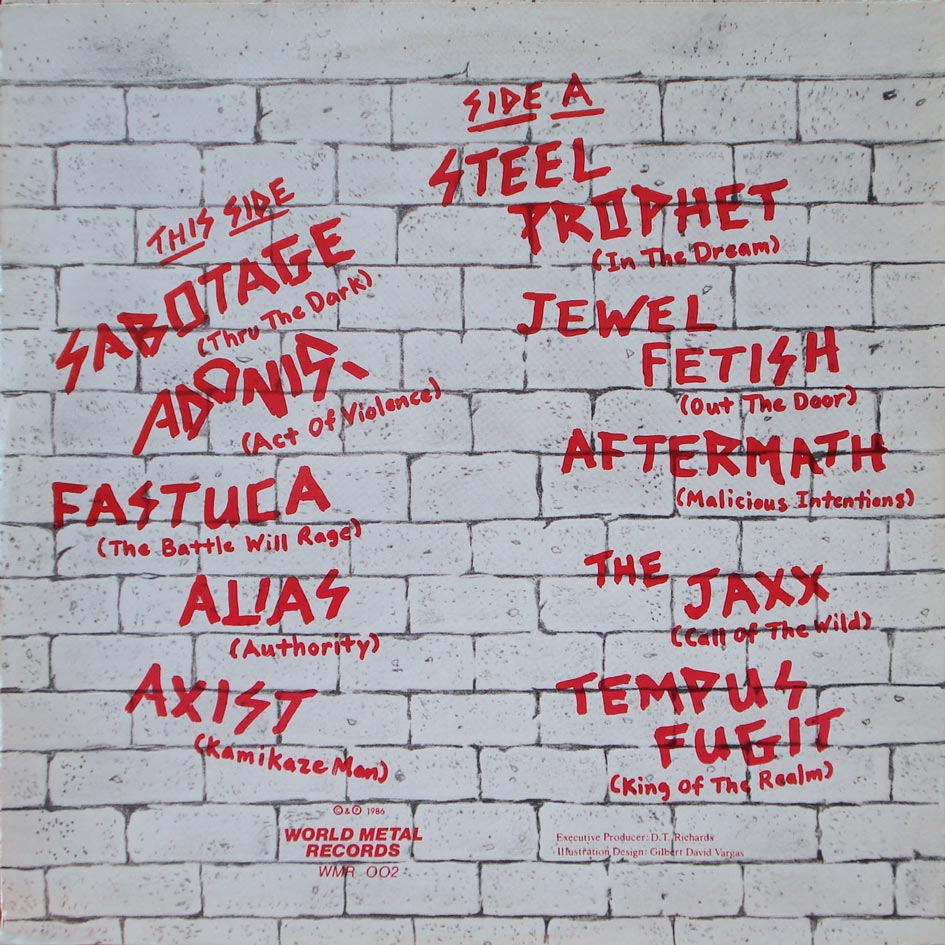 THIS SIDE
SABOTAGE
(Thru The Dark)
ADONIS
(Act Of Violence)
FASTUCA
(The Battle Will Rage)
ALIAS
(Authority)
AXIST
(Kamikaze Man)
SIDE A
STEEL
PROPHET
(In The Dream)
JEWEL
FETISH
(Out The Door)
AFTERMATH
(Malicious Intentions)
THE JAXX
(Call Of The Wild)
TEMPUS
FUGIT
(King Of The Realm)
©&℗ 1986
WORLD METAL
RECORDS
WMR 002
Executive Producer: D.T. Richards
Illustration Design: Gilbert David Vargas